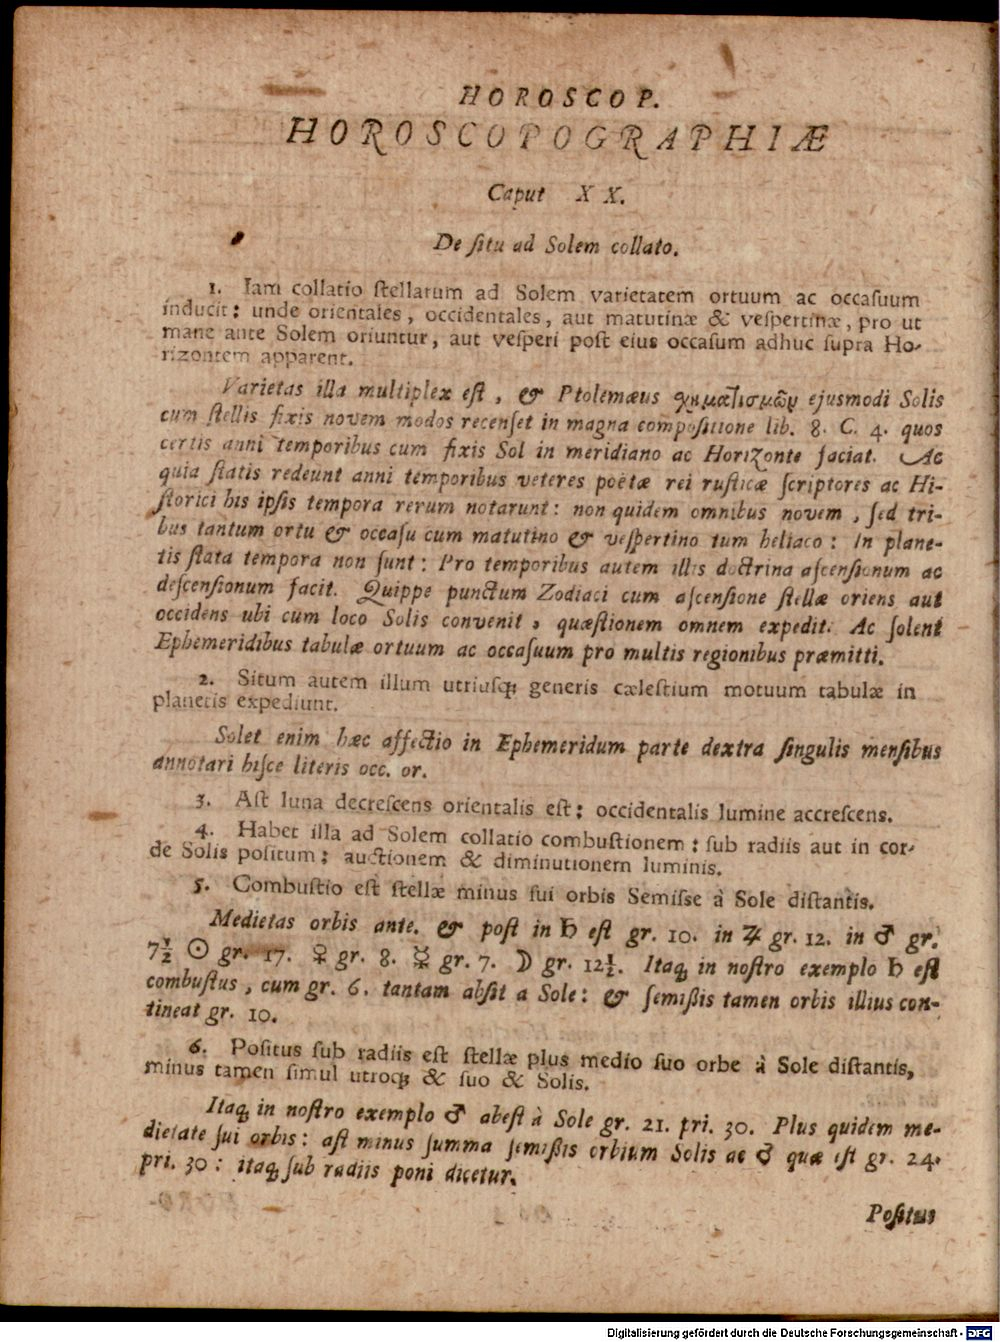 HOROSCOP.
HOROSCOPOGRAPHIÆ
Caput XX.
De ſitu ad Solem collato.
1. Iam collatio ſtellarum ad Solem varietatem ortuum ac occaſuum
inducit: unde orientales, occidentales, aut matutinæ & veſpertinæ, pro ut
mane ante Solem oriuntur, aut veſperi poſt eius occaſum adhuc ſupra Ho-
rizontem apparent.
Varietas illa multiplex eſt, & Ptolemæus χηματισμῶν ejusmodi Solis
cum ſtellis fixis novem modos recenſet in magna compoſitione lib. 8. C. 4. quos
certis anni temporibus cum fixis Sol in meridiano ac Horizonte faciat. Ac
quia ſtatis redeunt anni temporibus veteres poëtæ rei ruſticæ ſcriptores ac Hi-
ſtorici his ipſis tempora rerum notarunt: non quidem omnibus novem, ſed tri-
bus tantum ortu & occaſu cum matutino & veſpertino tum heliaco: In plane-
tis ſtata tempora non ſunt: Pro temporibus autem illis doctrina aſcenſionum ac
deſcenſionum facit. Quippe punctum Zodiaci cum aſcenſione ſtellæ oriens aut
occidens ubi cum loco Solis convenit, quæſtionem omnem expedit. Ac ſolent
Ephemeridibus tabulæ ortuum ac occaſuum pro multis regionibus præmitti.
2. Situm autem illum utriuſq; generis cæleſtium motuum tabulæ in
planetis expediunt.
Solet enim hæc affectio in Ephemeridum parte dextra ſingulis menſibus
annotari hiſce literis occ. or.
3. Aſt luna decreſcens orientalis eſt: occidentalis lumine accreſcens.
4. Habet illa ad Solem collatio combuſtionem: ſub radiis aut in cor-
de Solis poſitum: auctionem & diminutionem luminis.
5. Combuſtio eſt ſtellæ minus ſui orbis Semiſſe à Sole diſtantis.
Medietas orbis ante. & poſt in ♄ eſt gr. 10. in ♃ gr. 12. in ♂ gr.
7½ ☉ gr. 17. ♀ gr. 8. ☿ gr. 7. ☽ gr. 12½. Itaq; in noſtro exemplo ♄ eſt
combuſtus, cum gr. 6. tantam abſit a Sole: & ſemiſsis tamen orbis illius con-
tineat gr. 10.
6. Poſitus ſub radiis eſt ſtellæ plus medio ſuo orbe à Sole diſtantis,
minus tamen ſimul utroq; & ſuo & Solis.
Itaq; in noſtro exemplo ♂ abeſt à Sole gr. 21. pri. 30. Plus quidem me-
dietate ſui orbis: aſt minus ſumma ſemiſsis orbium Solis ac ♂ quæ eſt gr. 24.
pri. 30: itaq; ſub radiis poni dicetur.
Poſitus
Digitalisierung gefördert durch die Deutsche Forschungsgemeinschaft - DFG